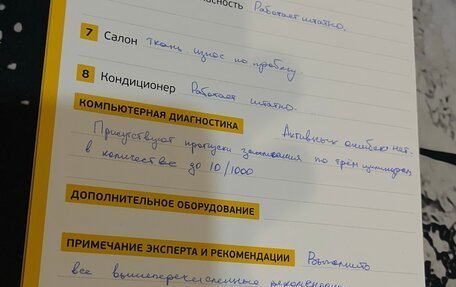 асность Работает штатно.
7 Салон ткань. износ по пробегу.
8 Кондиционер Работает штатно.
КОМПЬЮТЕРНАЯ ДИАГНОСТИКА Активных ошибок нет.
Присутствуют пропуски зажигания по трём цилиндрам
в количестве до 10/1000
ДОПОЛНИТЕЛЬНОЕ ОБОРУДОВАНИЕ
ПРИМЕЧАНИЕ ЭКСПЕРТА И РЕКОМЕНДАЦИИ Выполнить
все вышеперечисленные рекомендации